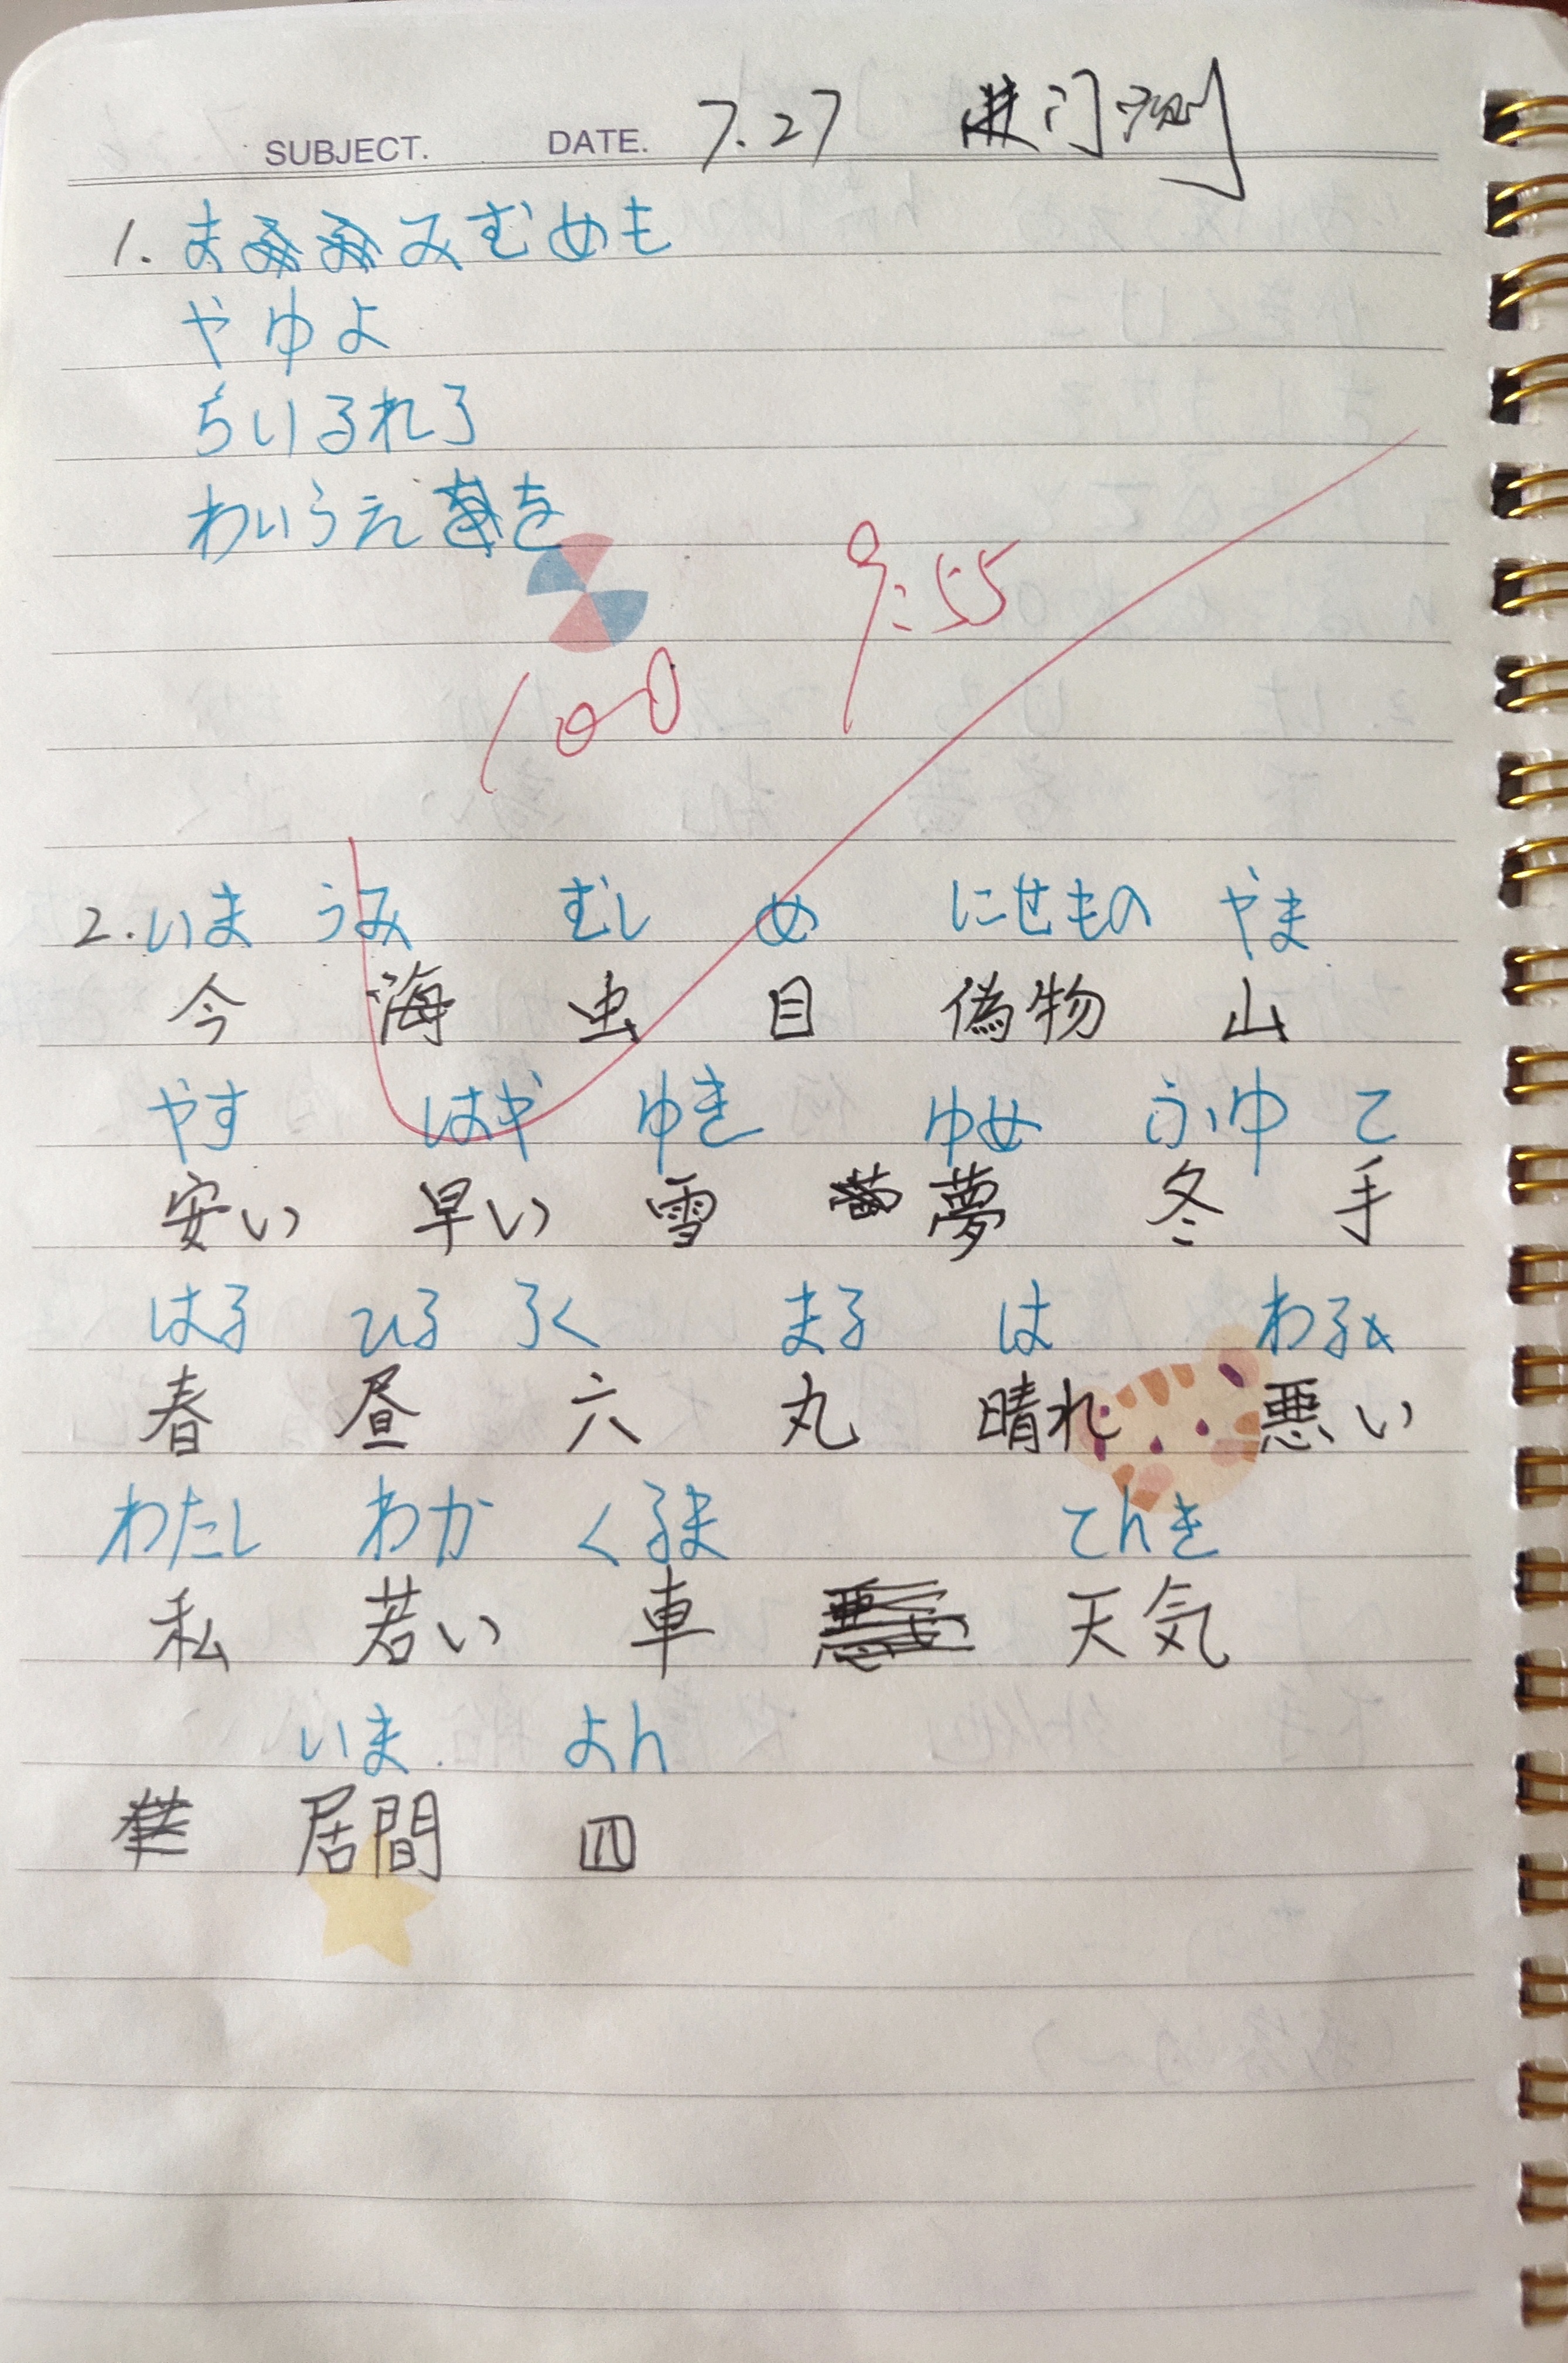 SUBJECT. DATE. 7.27 进门测
1. まみむめも
やゆよ
らりるれろ
わいうえを
9:55
100
2. いま うみ むし め にせもの やま
今 海 虫 目 偽物 山
やす はや ゆき ゆめ ふゆ て
安い 早い 雪 夢 冬 手
はる ひる ろく まる は わる
春 昼 六 丸 晴れ 悪い
わたし わか くるま てんき
私 若い 車 天気
いま よん
居間 四